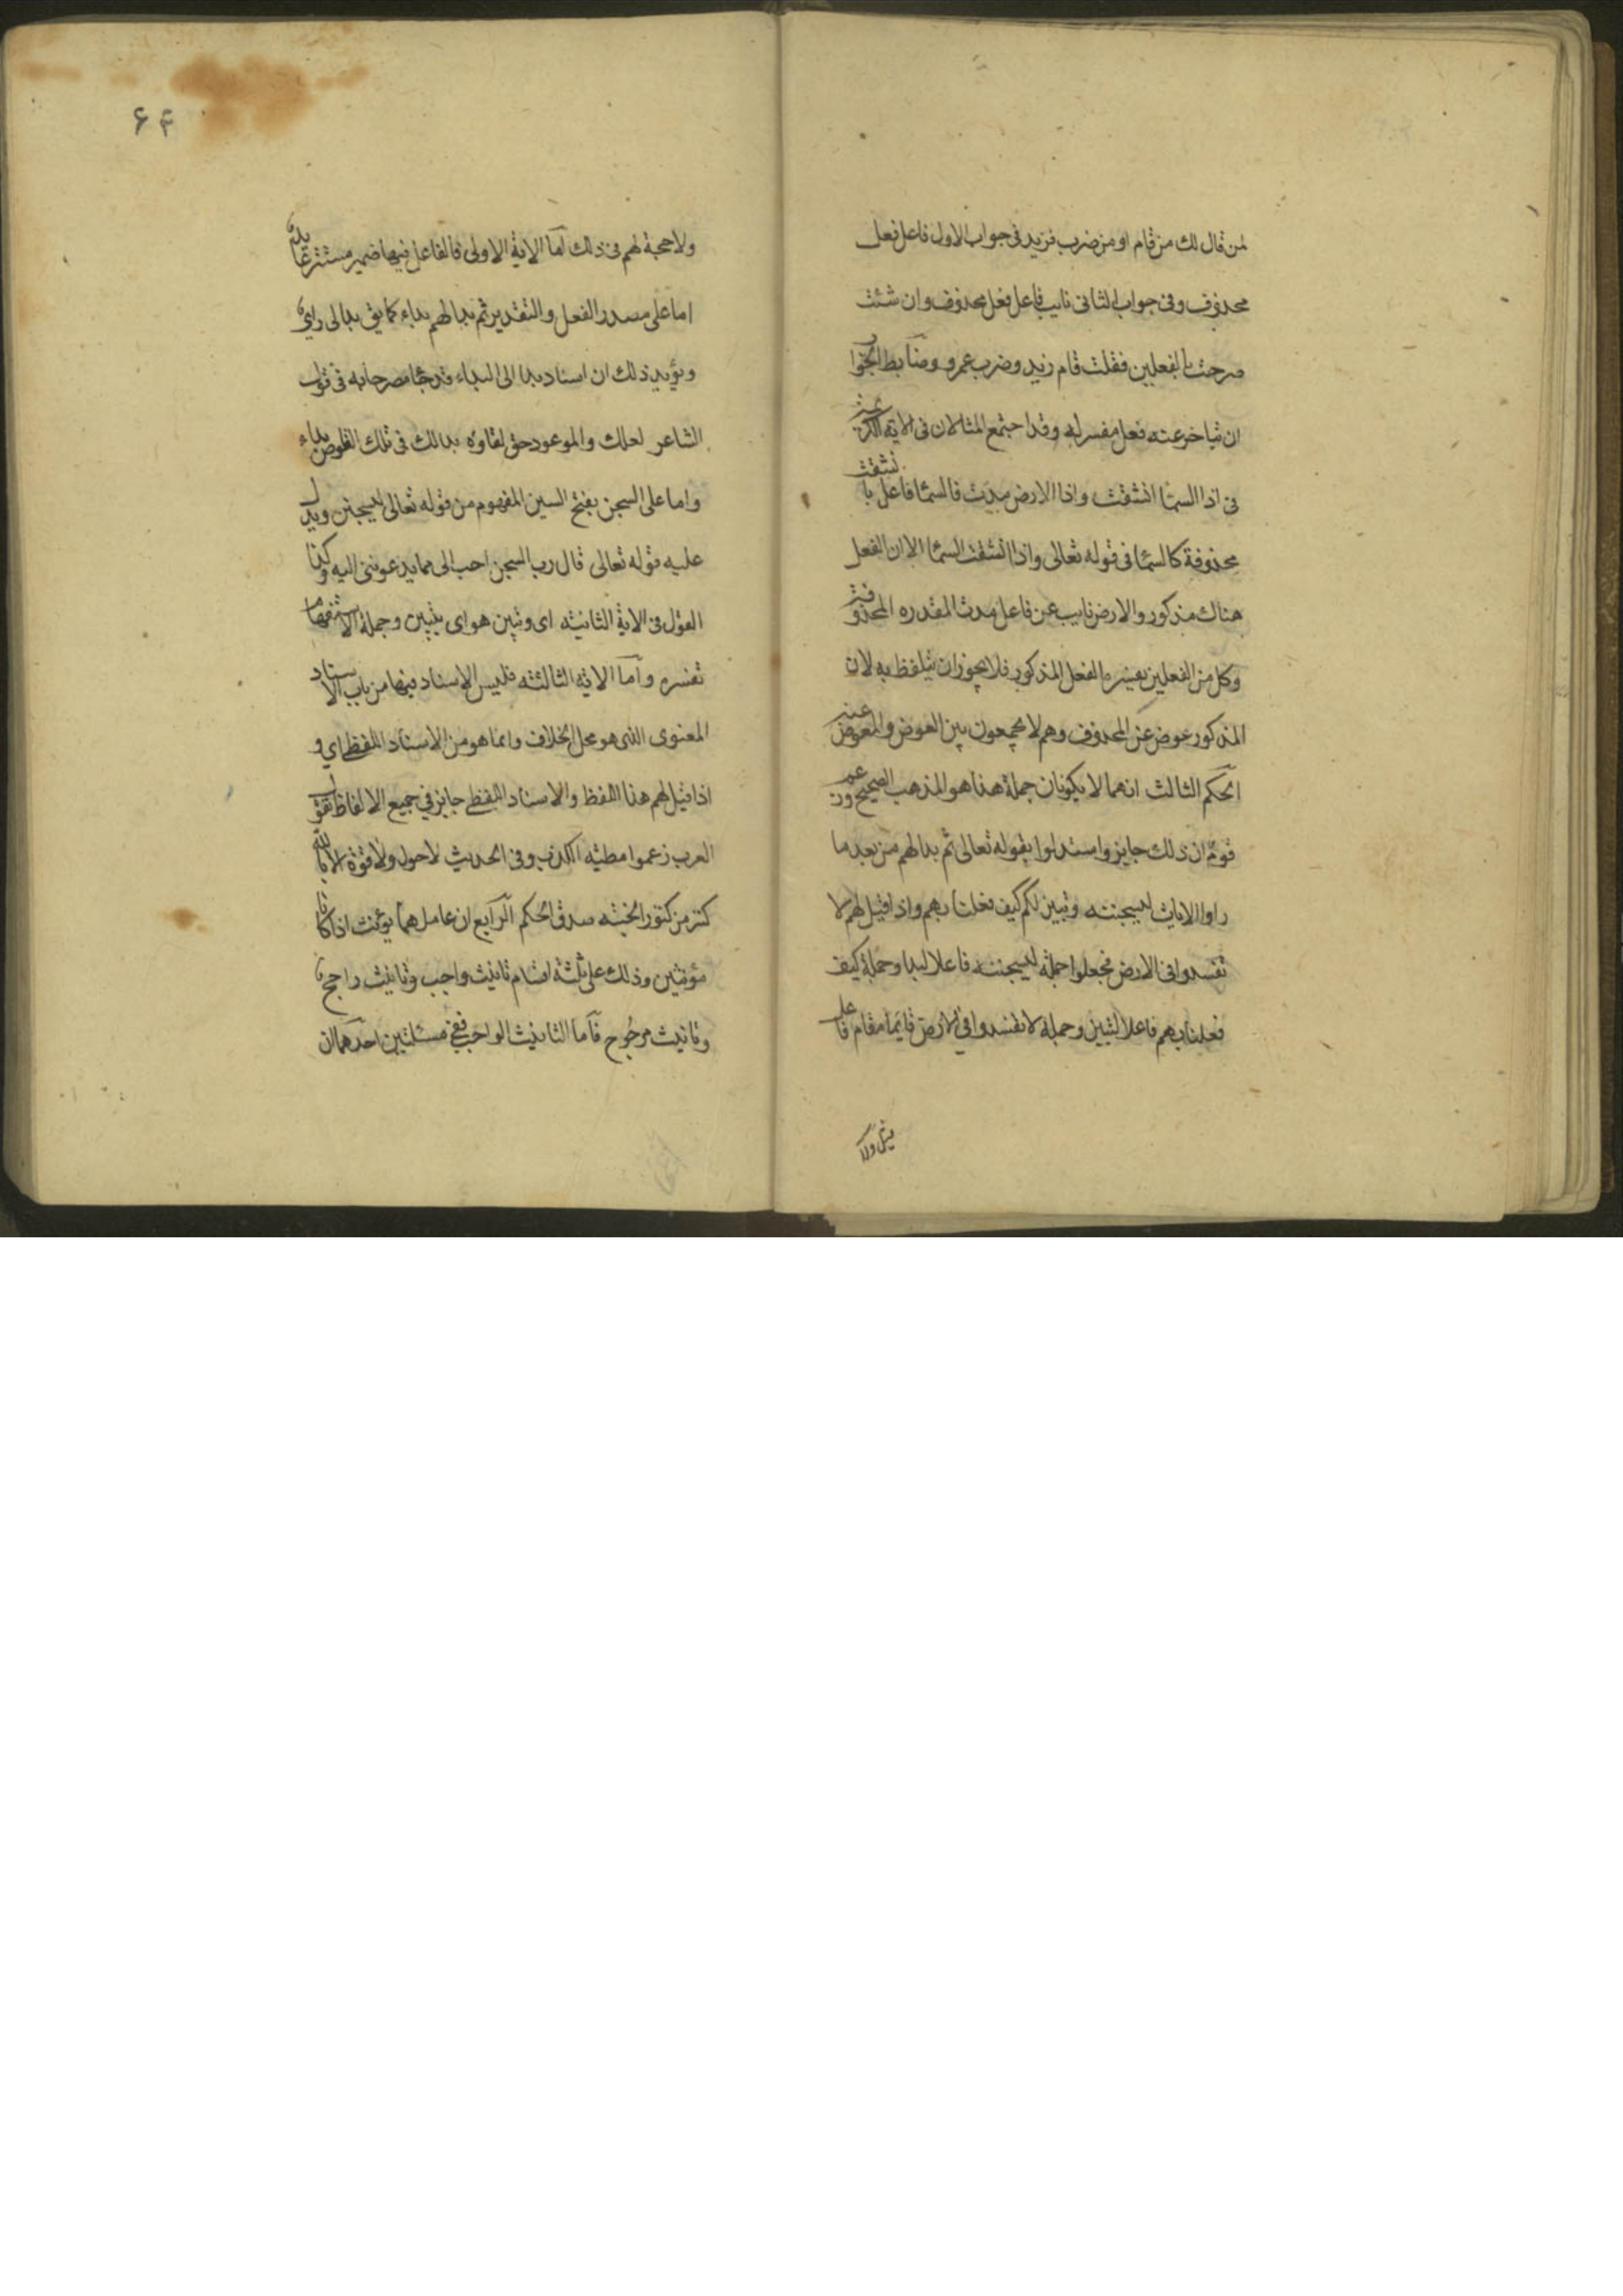 لمن قال لك من قام او من ضرب فزيد فى جواب الاول فاعل فعل
محذوف وفى جواب الثانى نايب فاعل فعل محذوف وان شئت
صرحت بالفعلين فقلت قام زيد وضرب عمرو وضابط الجوا
ان يتاخر عنه فعل مفسر له وقد اجتمع المثالان فى الاية الكريمة
فى اذا السما انشقت واذا الارض مدت فالسما فاعل بانشقت
محذوفة كالسما فى قوله تعالى واذا انشقت السما الا ان الفعل
هناك مذكور والارض نايب عن فاعل مدت المقدره المحذوفة
وكل من الفعلين يفسره الفعل المذكور فلا يجوز ان يتلفظ به لان
المذكور عوض عن المحذوف وهم لا يجمعون بين العوض والمعوض عنه
الحكم الثالث انهما لا يكونان جملة هذا هو المذهب الصحيح وزعم
قوم ان ذلك جايز واستدلوا بقوله تعالى ثم بدا لهم من بعد ما
راوا الايات ليسجننه وتبين لكم كيف فعلنا بهم واذا قيل لهم لا
تفسدوا فى الارض فجعلوا جملة ليسجننه فاعلا لبدا وجملة كيف
فعلنا بهم فاعلا لتبين وجملة لا تفسدوا فى الارض قايما مقام فاعل
۶۴
ولا حجة لهم فى ذلك اما الاية الاولى فالفاعل فيها ضمير مستتر عايد
اما على مصدر الفعل والتقدير ثم بدا لهم بداء كما يق بدا لى راى
ويؤيد ذلك ان اسناد بدا الى البداء قد جا مصرحا به فى قول
الشاعر لعلك والموعود حق لقاؤه بدا لك فى تلك القلوص بداء
واما على السجن بفتح السين المفهوم من قوله تعالى ليسجنن ويدل
عليه قوله تعالى قال رب السجن احب الى مما يدعوننى اليه وكذا
القول فى الاية الثانية اى وتبين هو اى تبيين وجملة الاستفهام
تفسره واما الاية الثالثة فليس الاسناد فيها من باب الاسناد
المعنوى الذى هو محل الخلاف وانما هو من الاسناد اللفظ اي و
اذا قيل لهم هذا اللفظ والاسناد اللفظى جايز فى جميع الالفاظ تقول
العرب زعموا مطية الكذب وفى الحديث لا حول ولا قوة الا بالله
كنز من كنوز الجنة صدق الحكم الرابع ان عاملهما يونث اذا كانا
مؤنثين وذلك على ثلثة اقسام تانيث واجب وتانيث راجح
وتانيث مرجوح فاما التانيث الواجب ففى مسئلتين احدهما ان